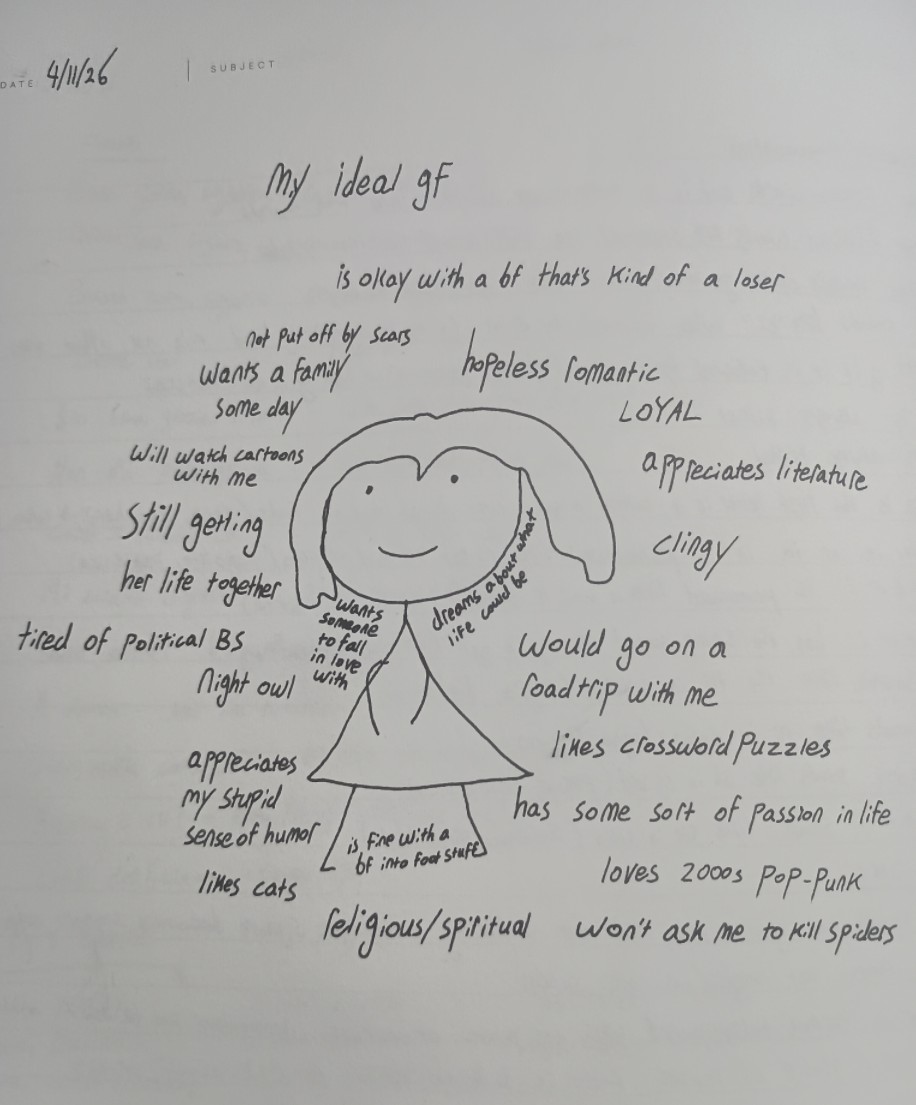 DATE 4/11/26 | SUBJECT
My ideal gf
is okay with a bf that's kind of a loser
not put off by scars
wants a family
some day
will watch cartoons
with me
still getting
her life together
tired of political BS
night owl
appreciates
my stupid
sense of humor
likes cats
religious/spiritual
hopeless romantic
LOYAL
appreciates literature
clingy
would go on a
roadtrip with me
likes crossword puzzles
has some sort of passion in life
loves 2000s pop-punk
won't ask me to kill spiders
wants
someone
to fall
in love
with
dreams about what
life could be
is fine with a
bf into foot stuff